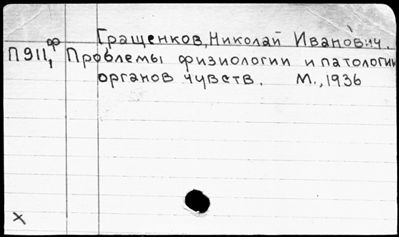 Гращенков, Николай Иванович.
П911,8/1 Проблемы физиологии и патологии
органов чувств. М., 1936
x